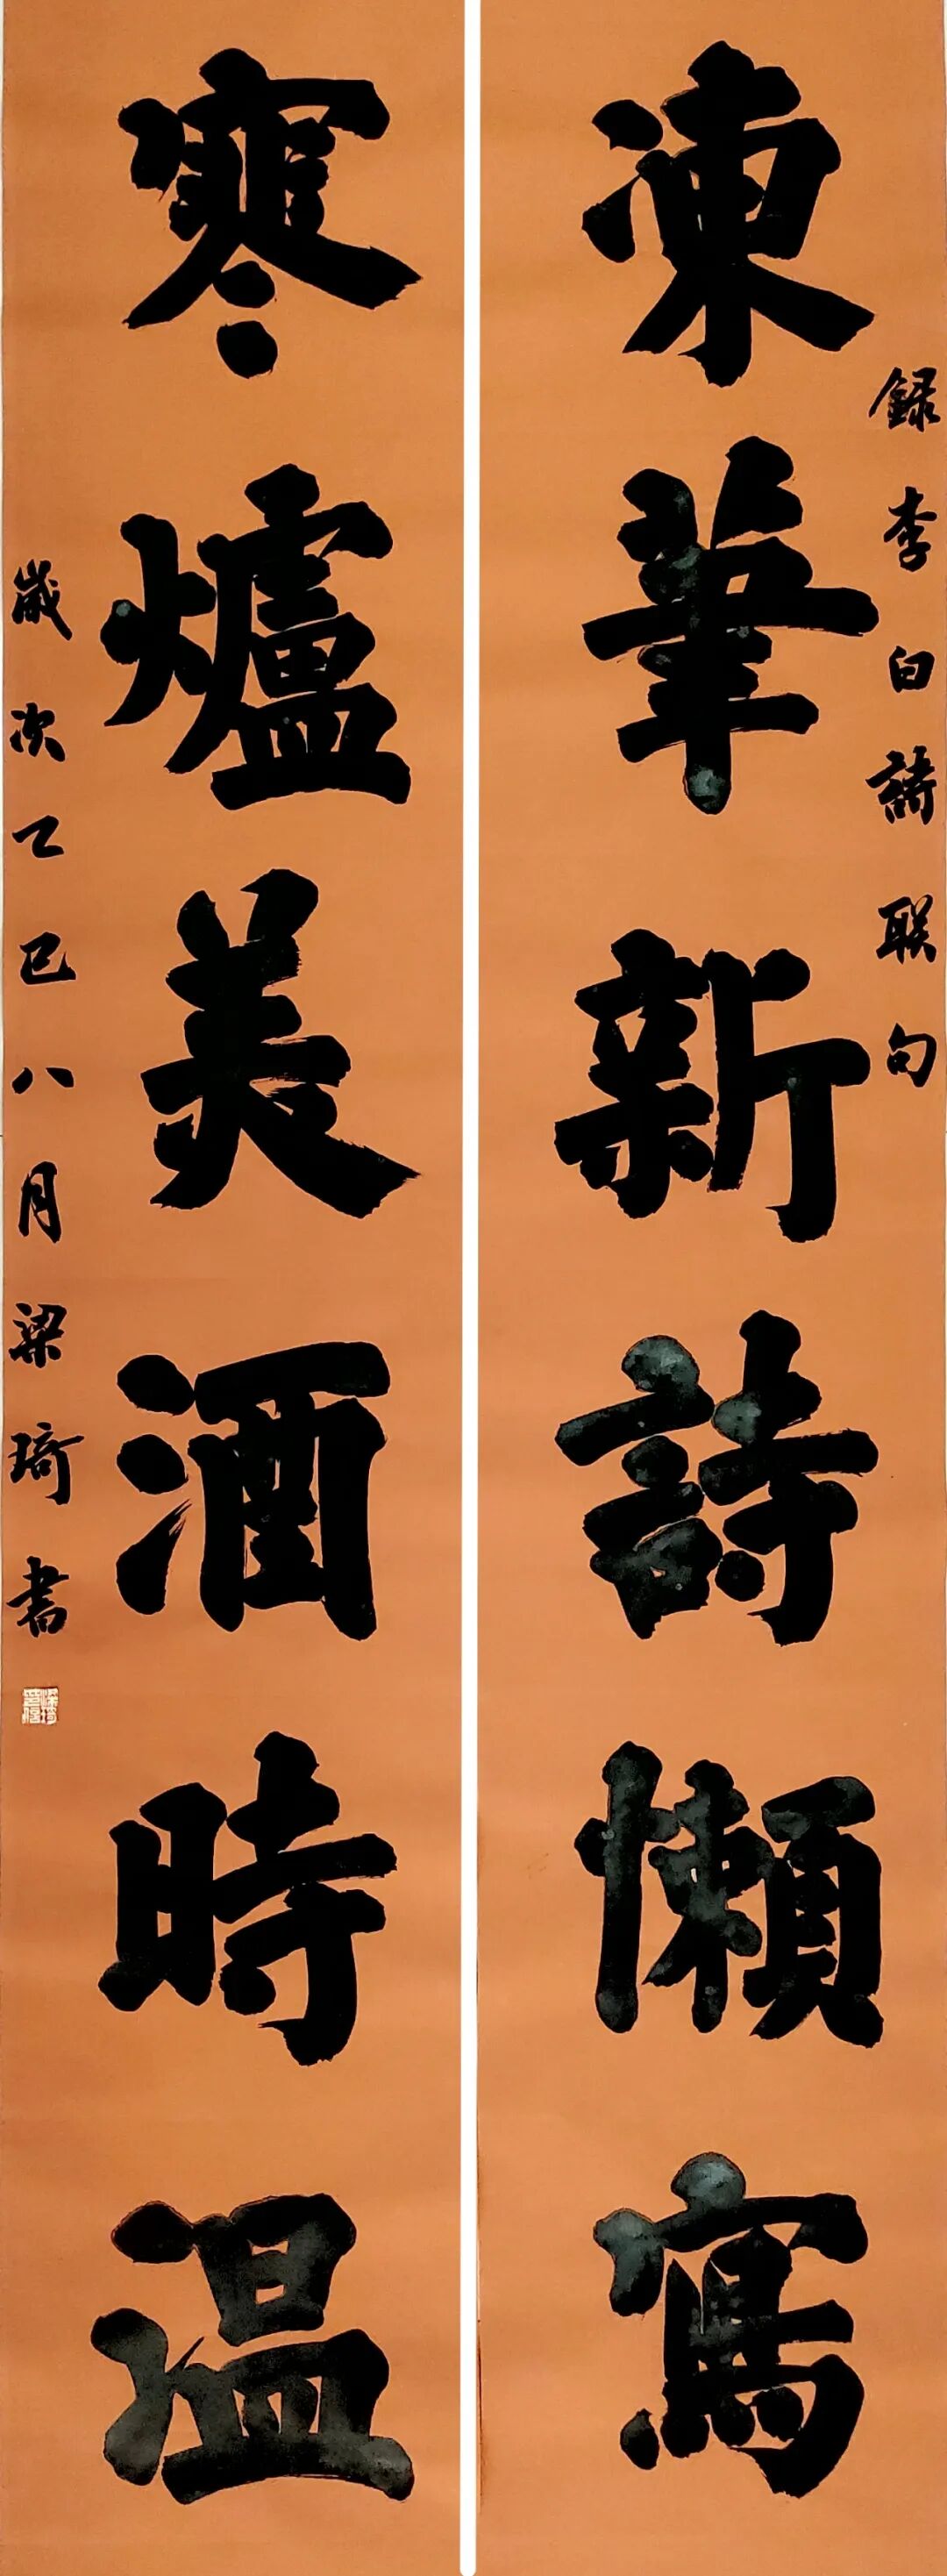 録李白詩联句
凍筆新詩懶寫
寒爐美酒時温
歲次乙巳八月梁琦書